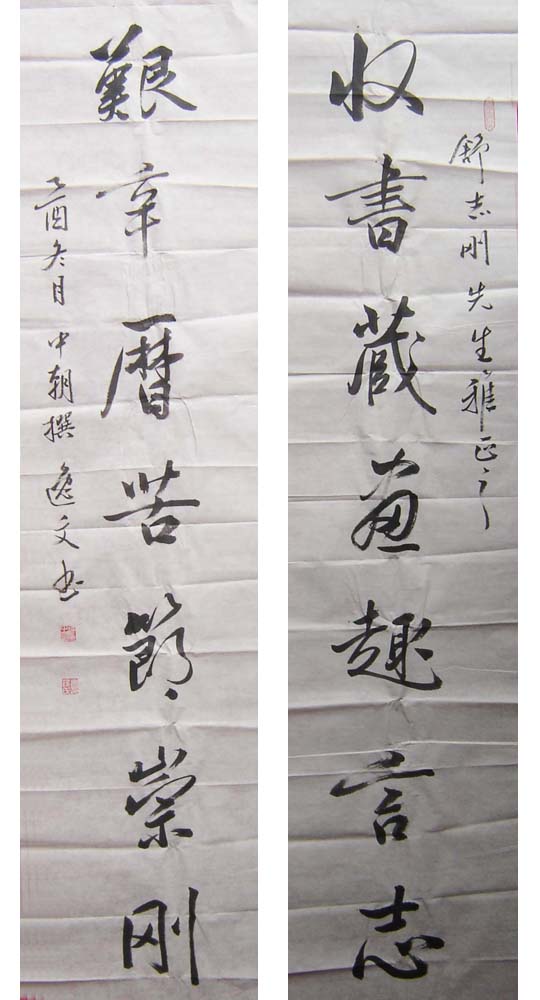 舒志刚先生雅正之
收书藏画趣言志
艱辛曆苦節崇刚
乙酉冬月中朝撰逸文书